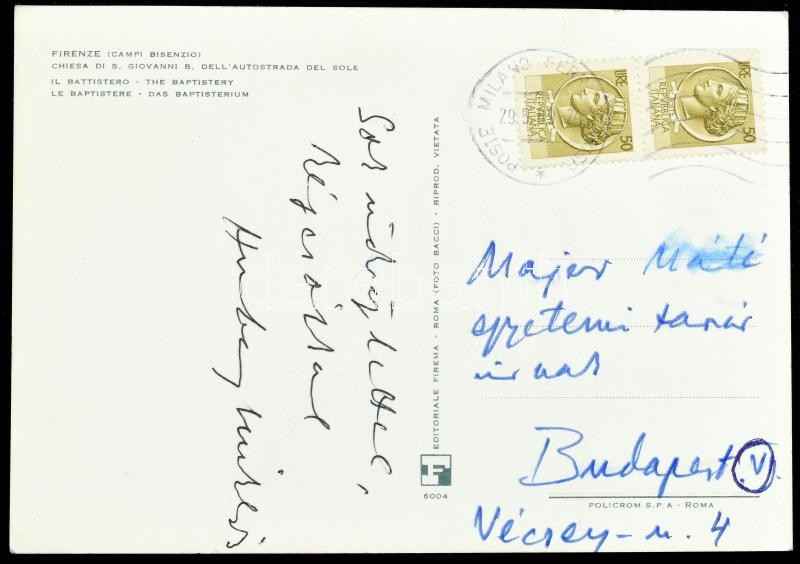 FIRENZE (CAMPI BISENZIO)
CHIESA DI S. GIOVANNI B. DELL'AUTOSTRADA DEL SOLE
IL BATTISTERO - THE BAPTISTERY
LE BAPTISTERE - DAS BAPTISTERIUM
Sok üdvözlettel,
EDITORIALE FIREMA - ROMA (FOTO BACCI) - RIPROD. VIETATA
F
6004
POSTE MILANO
29.9
LIRE 50
POSTE
REPVBBLICA
ITALIANA
LIRE 50
POSTE
REPVBBLICA
ITALIANA
Major Máté
egyetemi tanár
úrnak
Budapest V.
POLICROM S.P.A - ROMA
Vécsey-u. 4